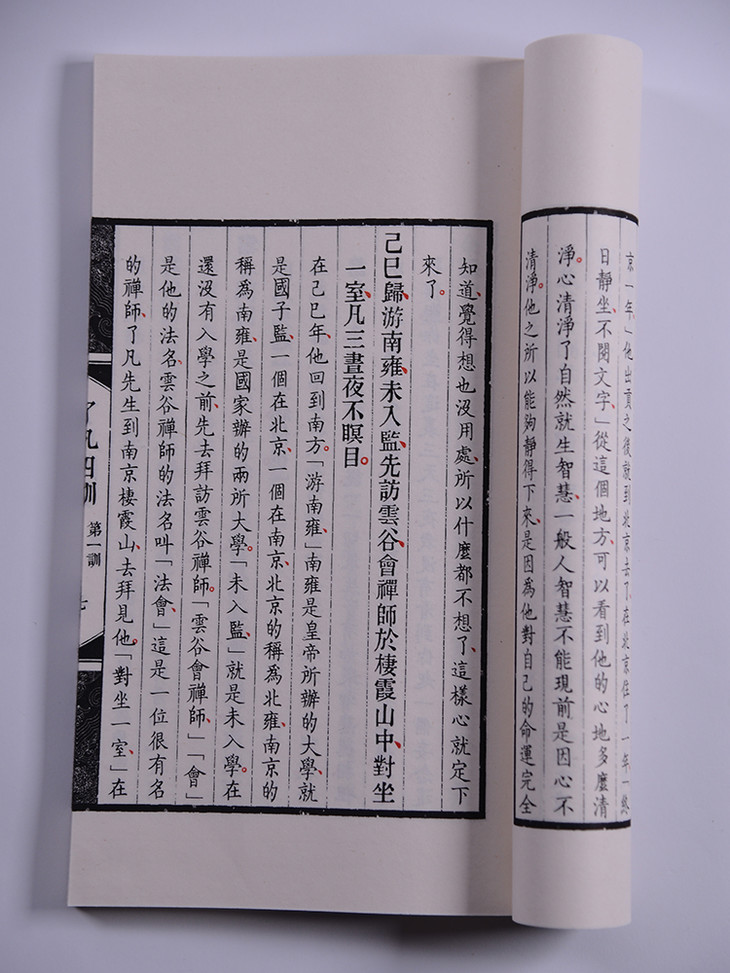 京一年」他出貢之後就到北京去了、在北京住了一年「終
日靜坐、不閱文字」從這個地方、可以看到他的心地多麼清
淨。心清淨了自然就生智慧、一般人智慧不能現前是因心不
清淨。他之所以能夠靜得下來、是因為他對自己的命運完全
知道、覺得想也沒用處、所以什麼都不想了、這樣心就定下
來了。
己巳歸、游南雍、未入監、先訪雲谷會禪師於棲霞山中、對坐
一室、凡三晝夜不瞑目。
在己巳年、他回到南方。「游南雍」南雍是皇帝所辦的大學、就
是國子監、一個在北京、一個在南京、北京的稱為北雍、南京的
稱為南雍、是國家辦的兩所大學。「未入監」就是未入學。在
還沒有入學之前、先去拜訪雲谷禪師。「雲谷會禪師」「會」
是他的法名、雲谷禪師的法名叫「法會」這是一位很有名
的禪師、了凡先生到南京棲霞山、去拜見他。「對坐一室」在
了凡四訓 第一訓 七